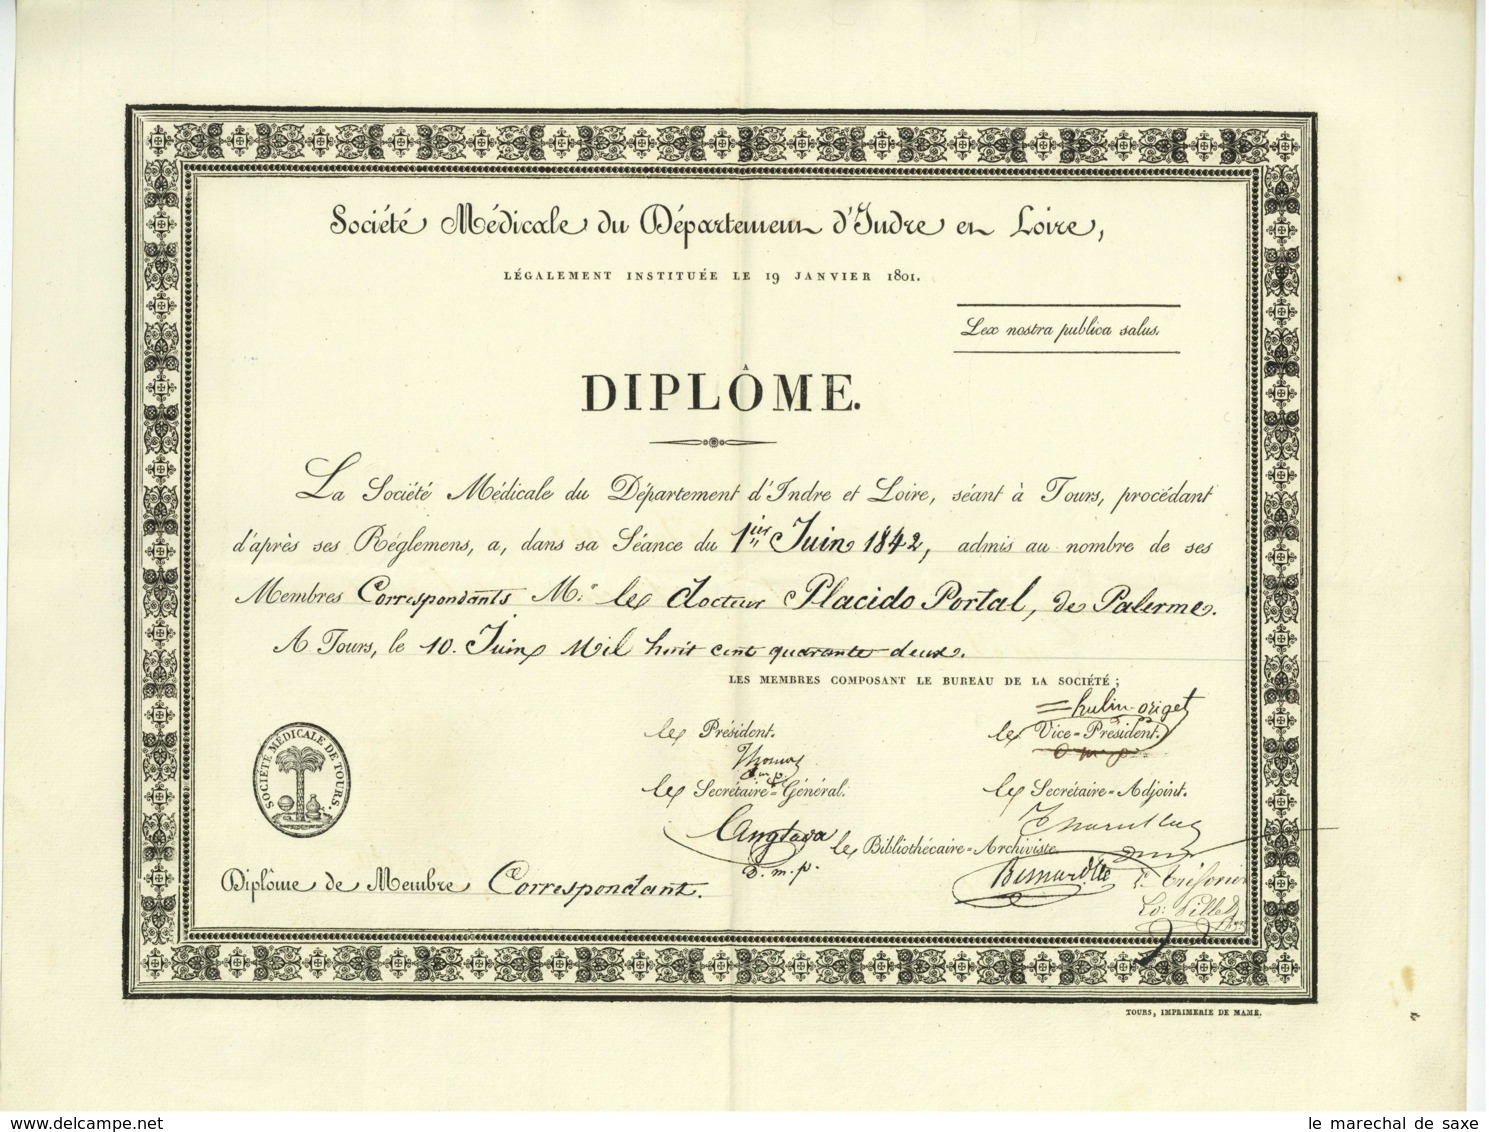 Société Médicale du Département d'Indre et Loire,
LÉGALEMENT INSTITUÉE LE 19 JANVIER 1801.
Lex nostra publica salus.
DIPLÔME.
La Société Médicale du Département d'Indre et Loire, séant à Tours, procédant
d'après ses Réglemens, a, dans sa Séance du 1ier Juin 1842, admis au nombre de ses
Membres Correspondants Mr. le docteur Placido Portal, de Palerme.
A Tours, le 10. Juin Mil huit cent quarante deux.
LES MEMBRES COMPOSANT LE BUREAU DE LA SOCIÉTÉ ;
le Président. le Vice-Président.
Thomas
d.m.p.
le Secrétaire-Général. le Secrétaire-Adjoint.
SOCIÉTÉ MÉDICALE DE TOURS.
Anglada le Bibliothécaire-Archiviste
D.m.p.
Diplôme de Membre Correspondant.
TOURS, IMPRIMERIE DE MAME.
delcampe.net
le marechal de saxe